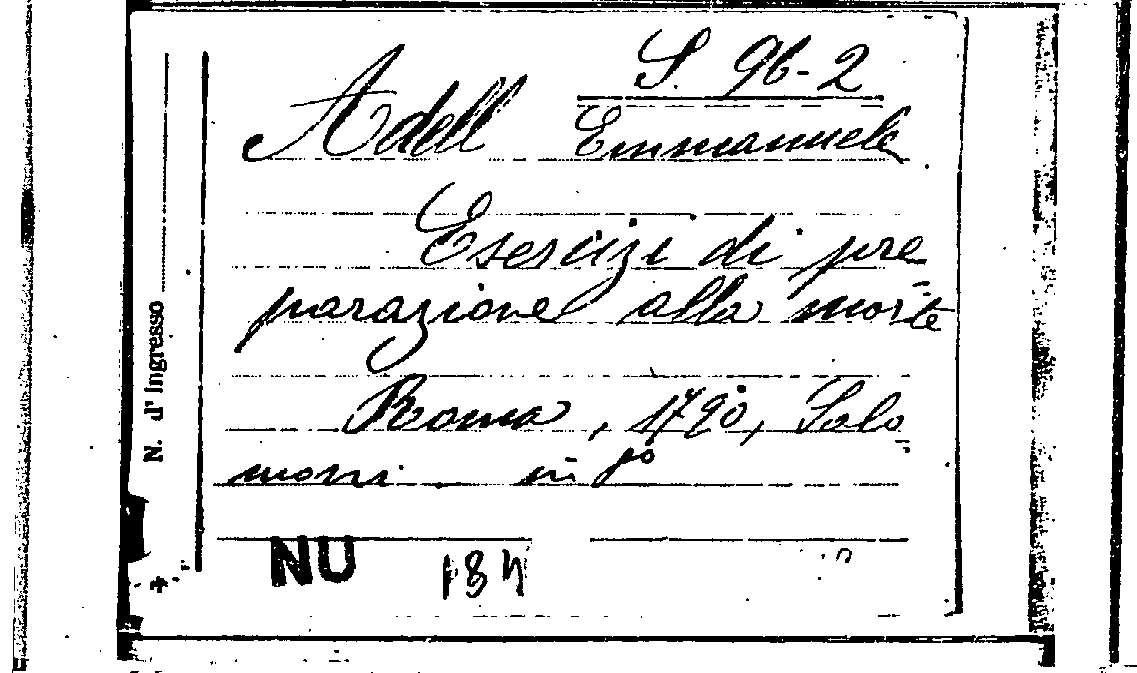 S. 96-2
Adell Emmanuele
Esercizi di pre-
parazione alla morte
Roma, 1790, Salo-
moni. in
N. d'Ingresso
NU 184